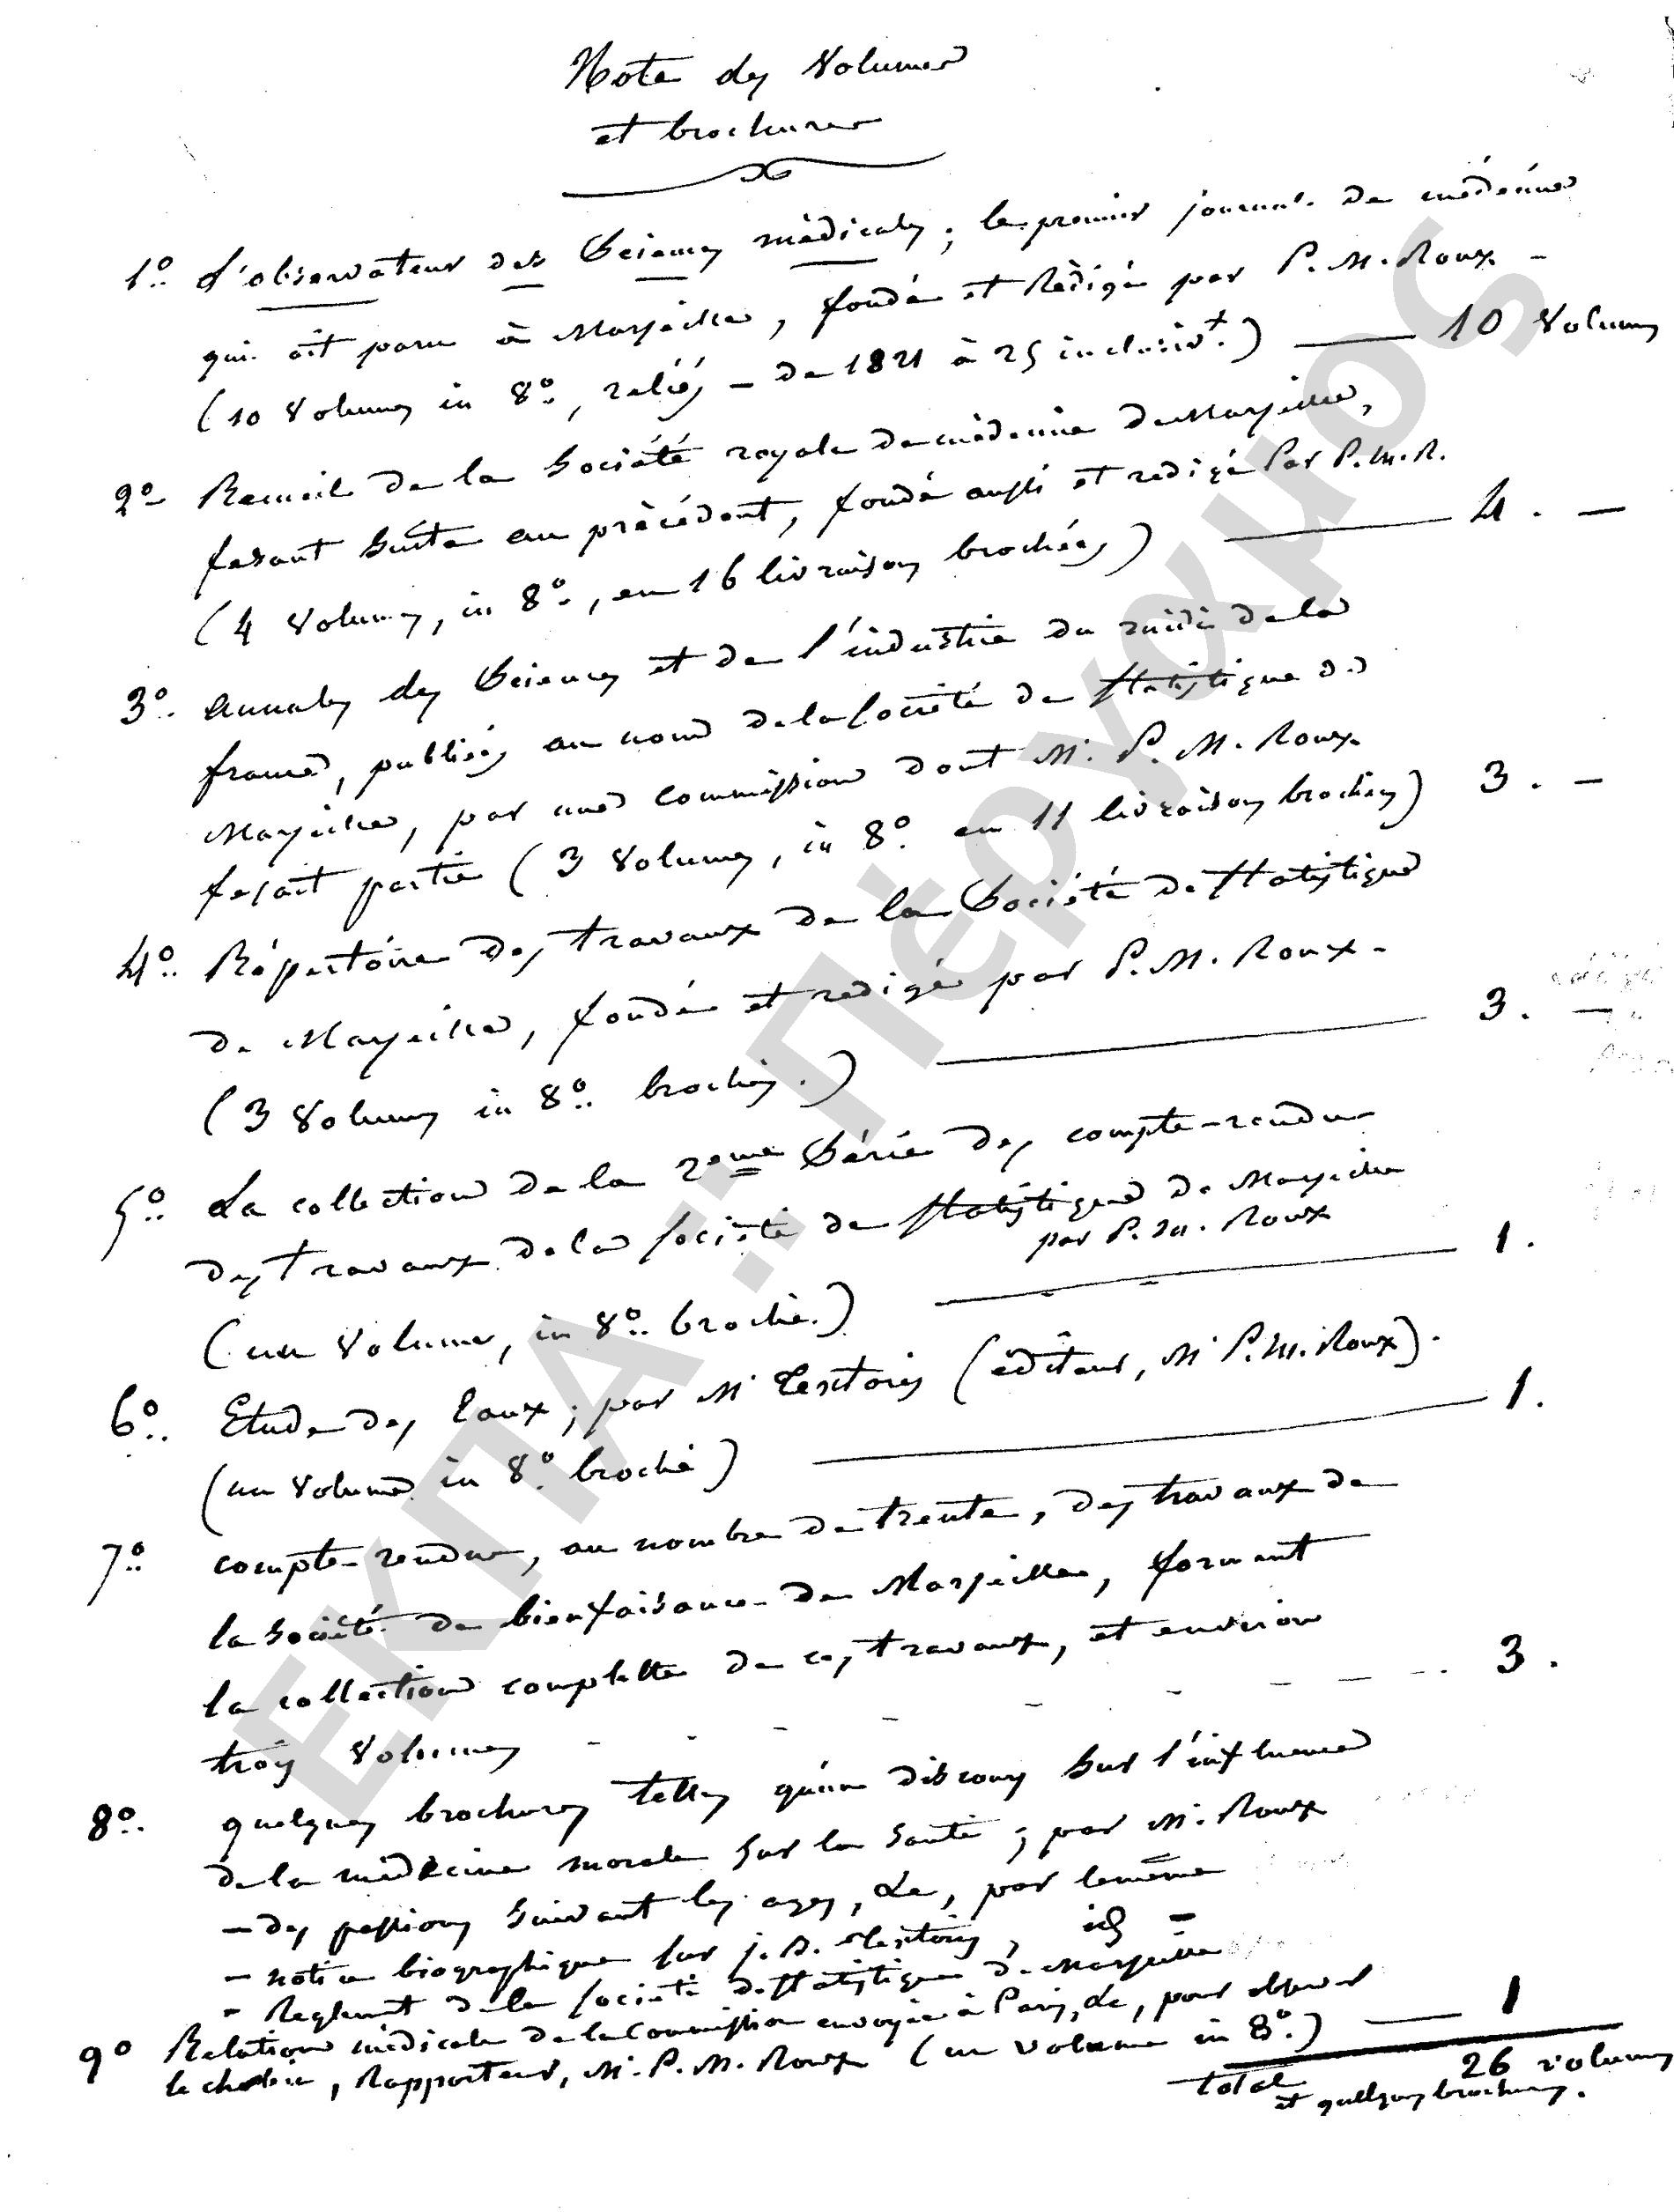 Note des Volumes
et brochures
1º. L'observateur des Sciences médicales; le premier journal de médecine
qui ait paru à Marseille, fondé et Rédigé par P. M. Roux -
(10 Volumes in 8º., reliés - de 1821 à 25 inclusivt.) — 10 Volumes
2º Recueil de la Société royale de médecine de Marseille,
fesant Suite au précédent, fondé aussi et redigé Par P. M. R.
(4 Volumes, in 8º., en 16 livraisons brochées) — 4 . —
3º. Annales des Sciences et de l'industrie du midi de la
france, publiées au nom de la Société de Statistique de
Marseille, par une Commission dont M. P. M. Roux
fesait partie (3 Volumes, in 8º. en 11 livraisons brochées) 3 . —
4º. Répertoire des travaux de la Société de Statistique
de Marseille, fondé et redigé par P. M. Roux -
(3 Volumes in 8º. brochés.) — 3 . —
5º. La collection de la 2eme Série des compte-rendus
des Travaux de la Société de Statistique de Marseille
par P. M. Roux
(un Volume, in 8º. broché.) — 1 .
6º. Etude des Eaux; par M Textoris (éditeur, M P. M. Roux).
(un Volume in 8º. broché) — 1 .
7º. compte-rendus, au nombre de trente, des travaux de
la Société de bienfaisance de Marseille, formant
la collection complette de ces travaux, et environ
trois Volumes - - - - - - - - 3 .
8º. quelques brochures telles qu'un discours Sur l'influence
de la médecine morale Sur la Santé; par M. Roux
- des passions Suivant les ages, &c, par le même
- notice biographique sur J. B. Textoris, id -
- Reglement de la Société de Statistique de Marseille
9º Relation médicale de la Commission envoyée à Paris, &c, pour observer
le cholera, Rapporteur, M. P. M. Roux (un volume in 8º.) — 1
total 26 volumes
et quelques brochures.
ΕΚΠΑ .. Πέργαμος